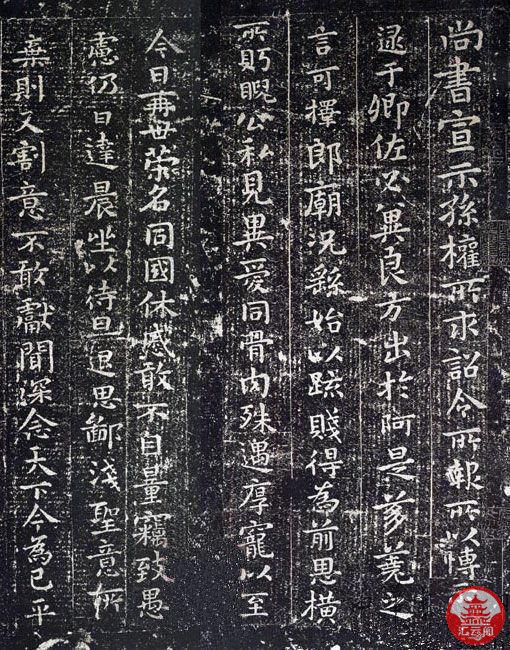 尚書宣示孫權所求詔令所報所以博
逮于卿佐必冀良方出於阿是芻蕘之
言可擇郎廟況繇始以疏賤得為前恩橫
所盱睨公私見異愛同骨肉殊遇厚寵以至
今日再世榮名同國休慼敢不自量竊致愚
慮仍日達晨坐以待旦退思鄙淺聖意所
棄則又割意不敢獻聞深念天下今為已平
汇云阁